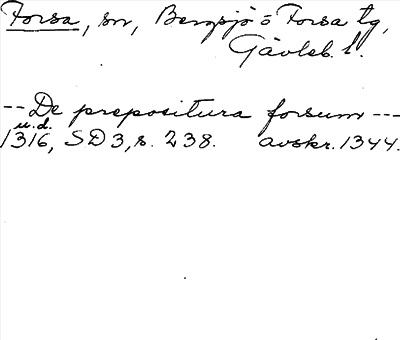 Forsa, sn, Bergsjö o Forsa tg,
Gävleb. l.
-- De prepositura forsum ---
u.d.
1316, SD 3, s. 238. avskr. 1344.